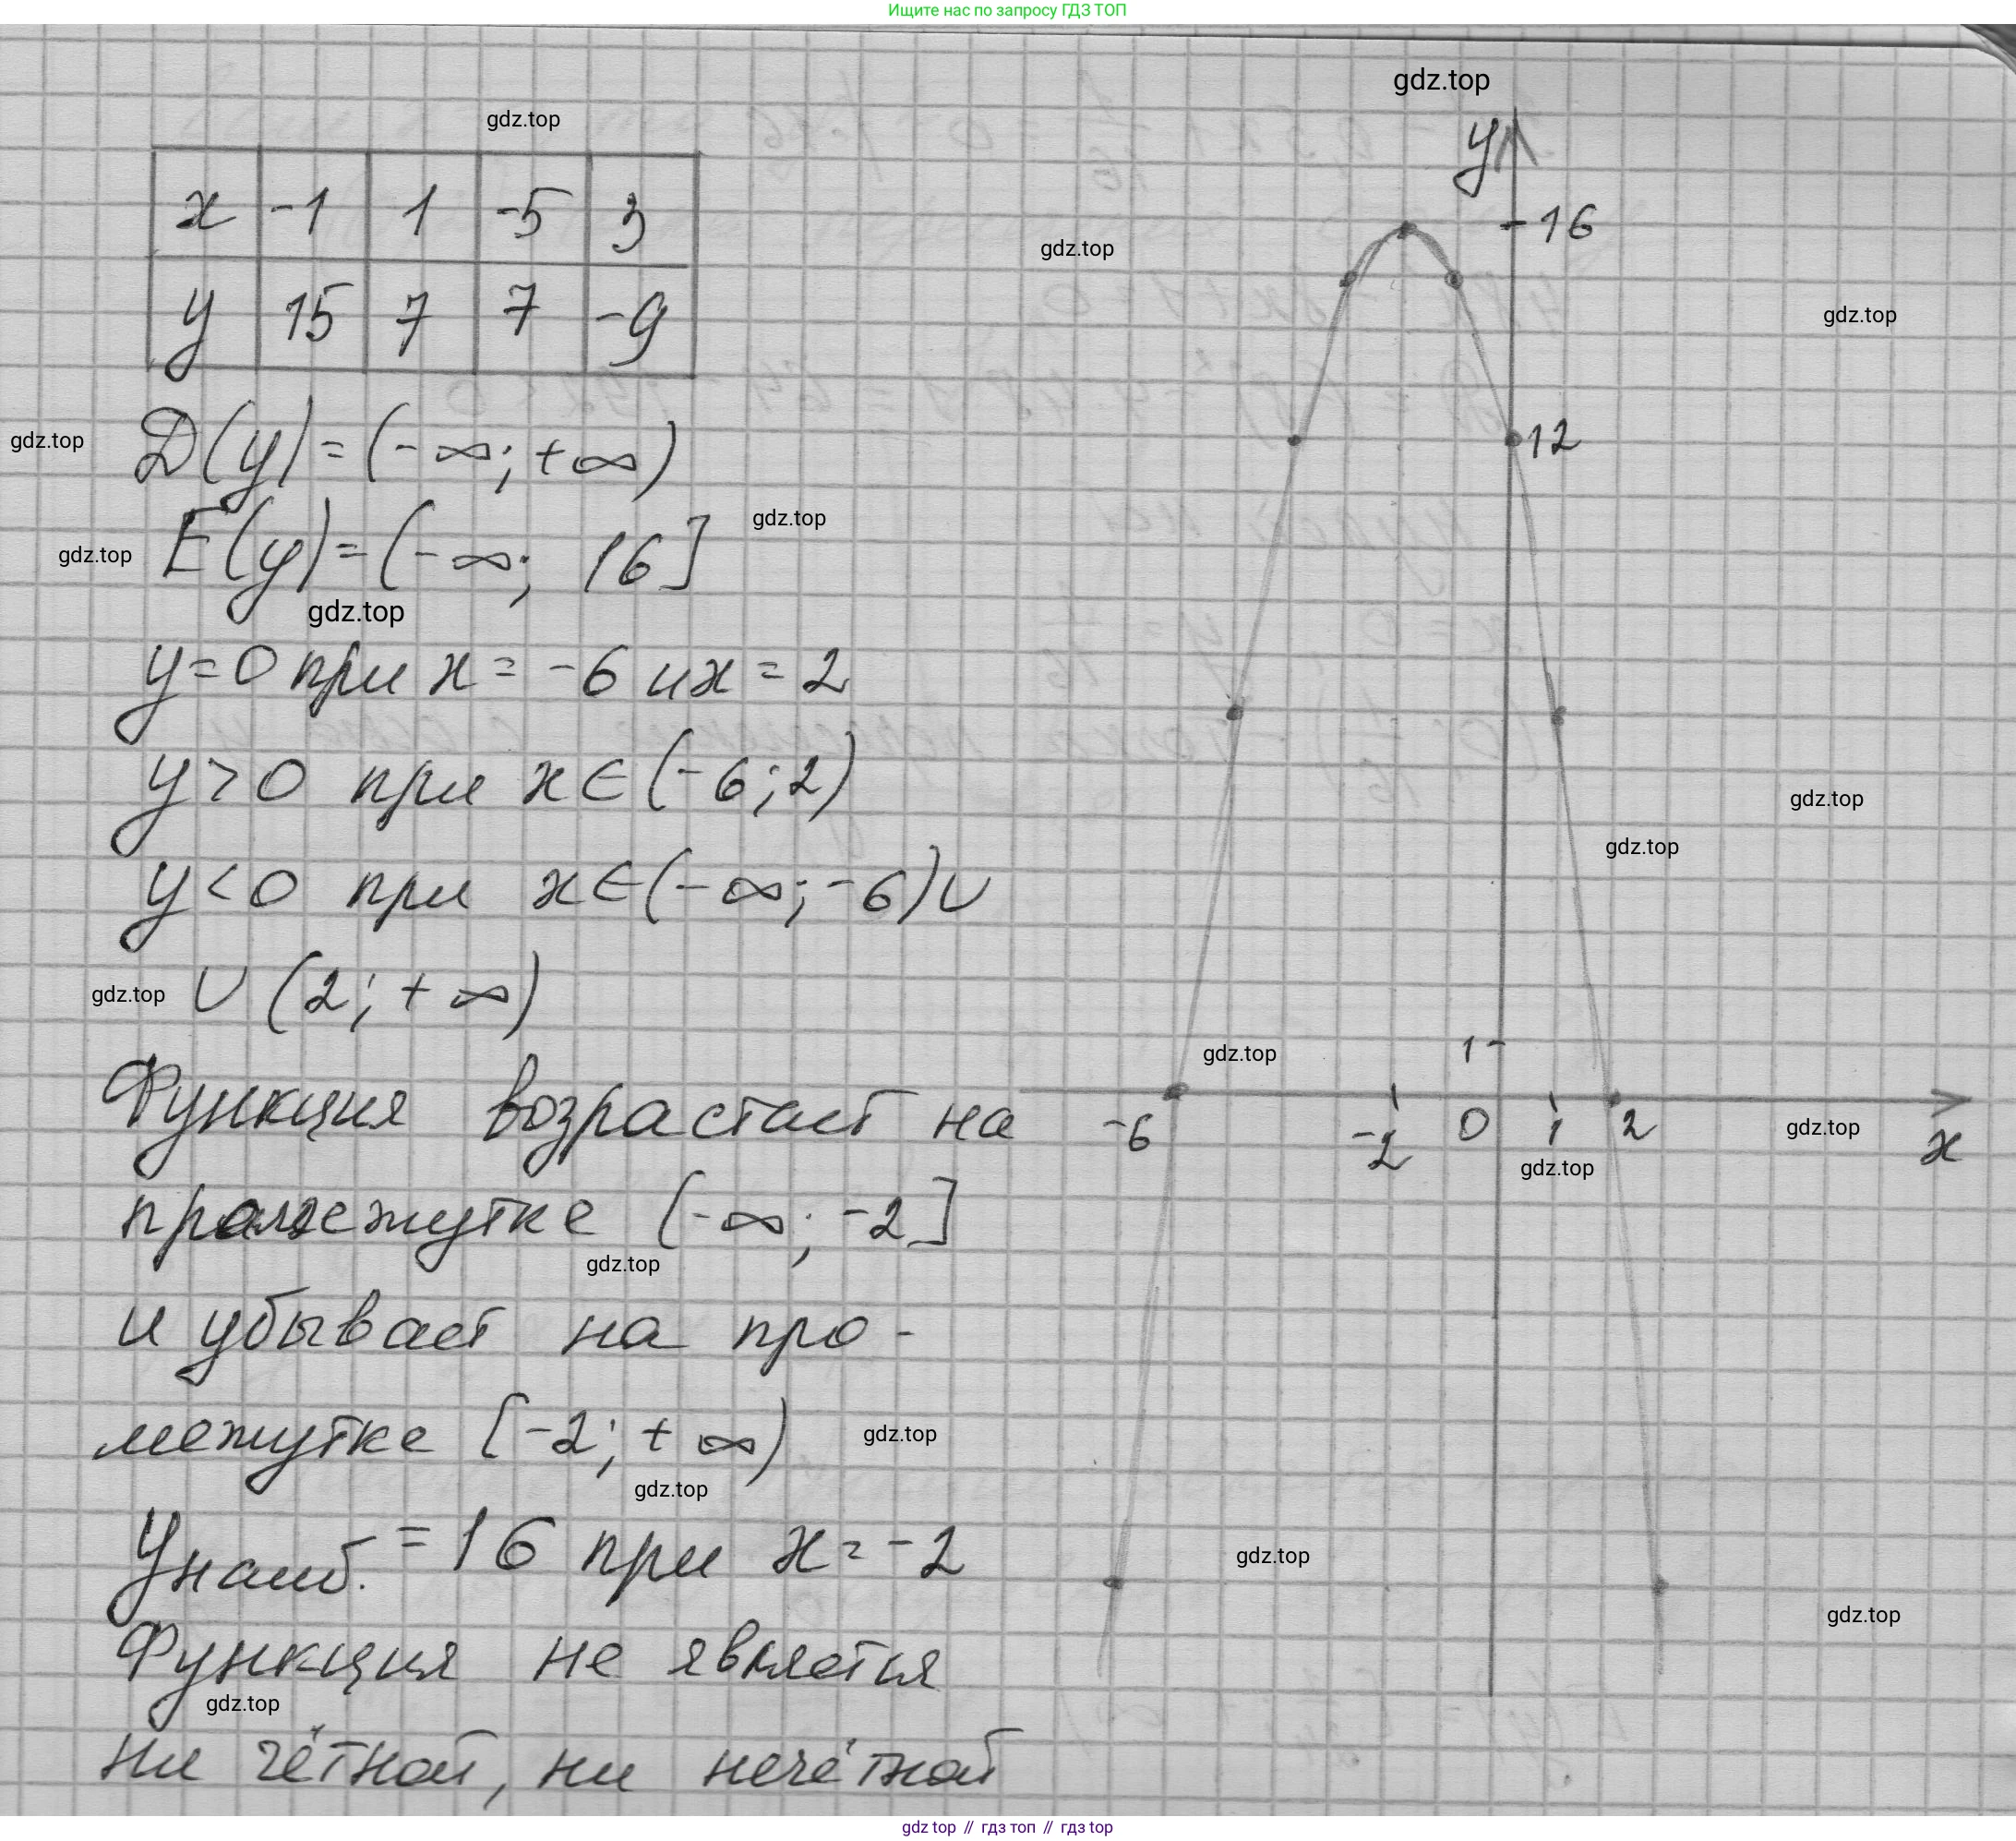 Ищите нас по запросу ГДЗ ТОП
gdz.top
gdz.top
x -1 1 -5 3
y 15 7 7 -9
gdz.top
D(y)=(-∞;+∞)
gdz.top
E(y)=(-∞; 16]
gdz.top
gdz.top
y=0 при x=-6 и x=2
y>0 при x∈(-6;2)
y<0 при x∈(-∞;-6)∪
gdz.top
∪(2;+∞)
Функция возрастает на
промежутке (-∞;-2]
gdz.top
и убывает на про-
межутке [-2;+∞)
gdz.top
gdz.top
yнаиб.=16 при x=-2
Функция не является
gdz.top
ни чётной, ни нечётной
y
16
gdz.top
gdz.top
12
gdz.top
gdz.top
1
gdz.top
-6 -2 0 1 2
gdz.top
x
gdz.top
gdz.top
gdz.top
gdz top // гдз топ // гдз top